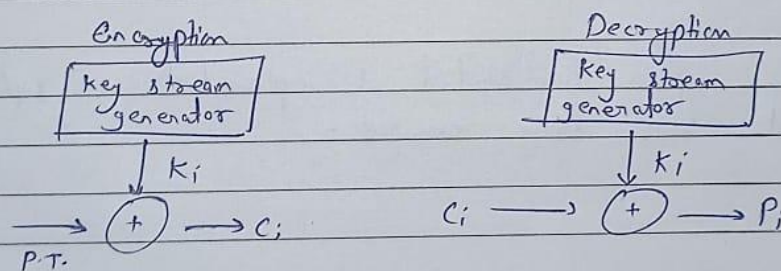 Encryption
Key stream
generator
Ki
+
Ci
P.T.
Decryption
Key stream
generator
Ki
Ci
+
Pi